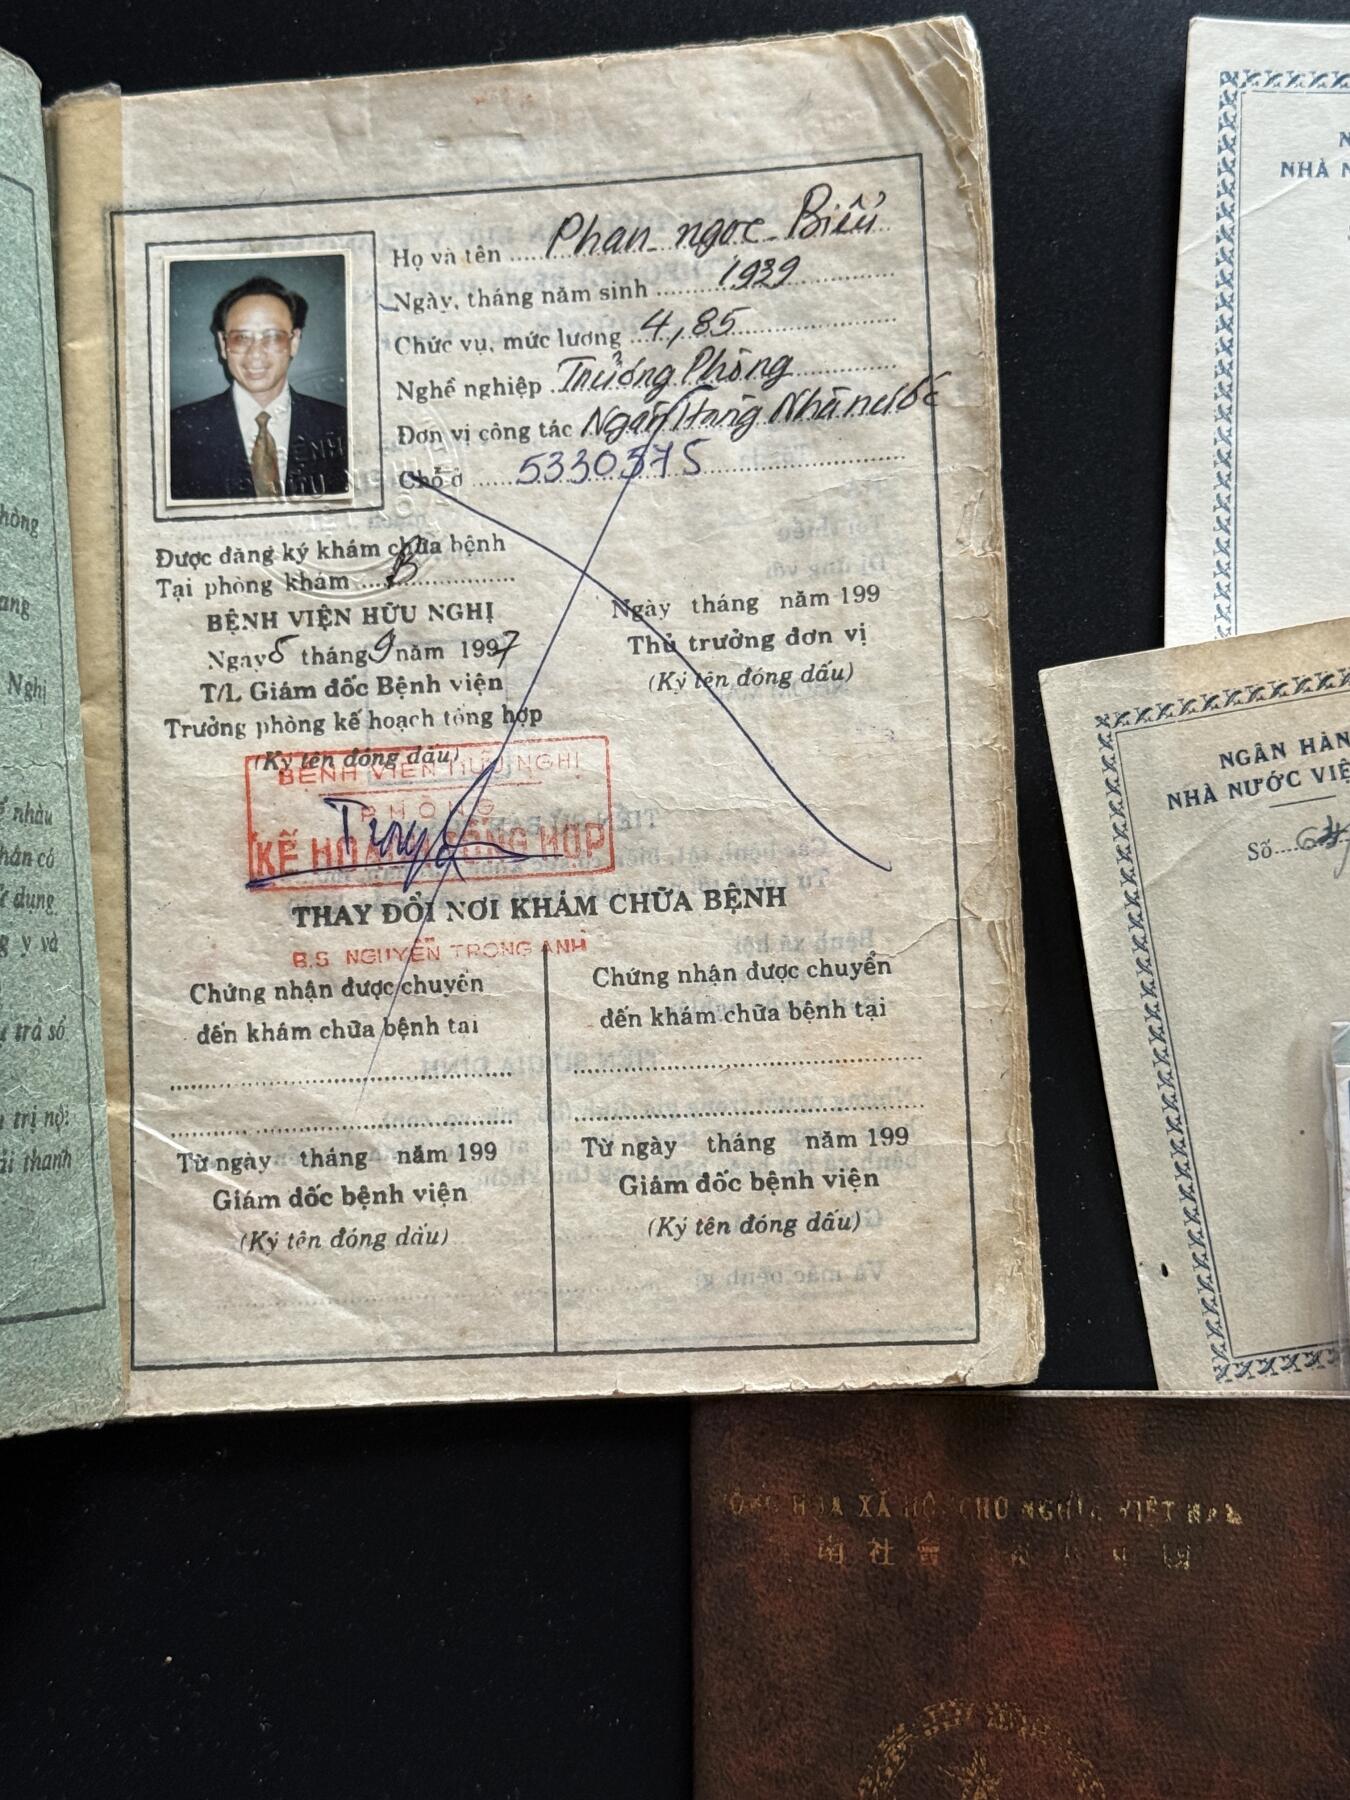 Họ và tên ..... Phan ngọc Biểu
Ngày, tháng năm sinh ....... 1939
Chức vụ, mức lương ... 4,85
Nghề nghiệp .. Trưởng Phòng
Đơn vị công tác Ngân Hàng Nhà nước
Chỗ ở ....... 5330375
Được đăng ký khám chữa bệnh
Tại phòng khám ..... B
BỆNH VIỆN HỮU NGHỊ
Ngày 5 tháng 9 năm 1997
T/L Giám đốc Bệnh viện
Trưởng phòng kế hoạch tổng hợp
(Ký tên đóng dấu)
Ngày tháng năm 199
Thủ trưởng đơn vị
(Ký tên đóng dấu)
BỆNH VIỆN HỮU NGHỊ
PHÒNG
KẾ HOẠCH TỔNG HỢP
THAY ĐỔI NƠI KHÁM CHỮA BỆNH
B.S NGUYỄN TRỌNG ANH
Chứng nhận được chuyển
đến khám chữa bệnh tại
Từ ngày tháng năm 199
Giám đốc bệnh viện
(Ký tên đóng dấu)
Chứng nhận được chuyển
đến khám chữa bệnh tại
Từ ngày tháng năm 199
Giám đốc bệnh viện
(Ký tên đóng dấu)
hòng
ang
Nghị
nhàu
dụng
g y và
trả số
trị nội
thanh
NHÀ N
NGÂN HÀN
NHÀ NƯỚC VIỆ
Số
HÒA XÃ HỘI CHỦ NGHĨA VIỆT NAM
南 社 會